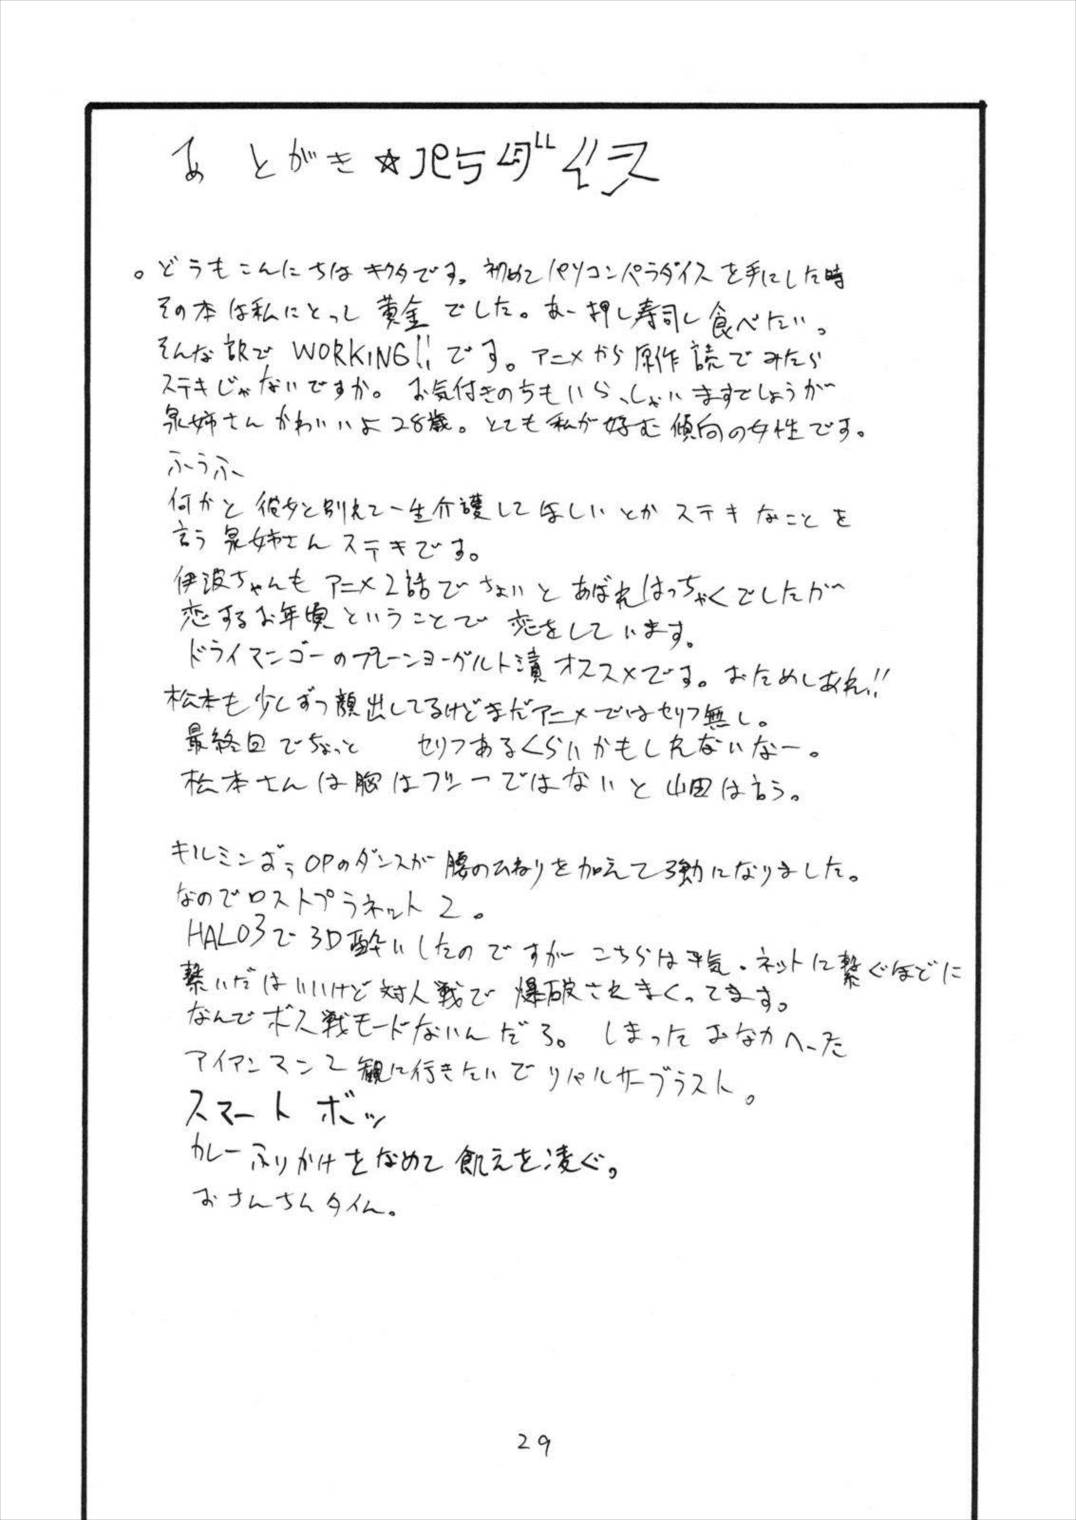 あとがき☆パラダイス
。どうもこんにちはキクタです。初めてパソコンパラダイスを手にした時
その本は私にとって黄金でした。あー押し寿司し食べたい。
そんな訳で WORKING!! です。アニメから原作読でみたら
ステキじゃないですか。お気付きのちもいらっしゃいますでしょうが
泉姉さんかわいいよ28歳。とても私が好む傾向の女性です。
ふうふ
何かと彼女と別れて一生介護してほしいとかステキなことを
言う泉姉さんステキです。
伊波ちゃんもアニメ2話でちょいとあばれはっちゃくでしたが
恋するお年頃ということで恋をしています。
ドライマンゴーのプレーンヨーグルト漬オススメです。おためしあれ!!
松本も少しずつ顔出ししてるけどまだアニメではセリフ無し。
最終回でちょっと セリフあるくらいかもしれないなー。
松本さんは胸はフツーではないと山田は言う。
キルミンずぅOPのダンスが腰のひねりを加えて強力になりました。
なのでロストプラネット2。
HALO3で3D酔いしたのですがこちらは平気。ネットに繋ぐほどに
繋いだはいいけど対人戦で爆破されまくってます。
なんでボス戦モードないんだろ。しまったおなかへった
アイアンマン2観に行きたいでリパルサーブラスト。
スマートボッ
カレーふりかけをなめて飢えを凌ぐ。
おさんちんタイム。
29